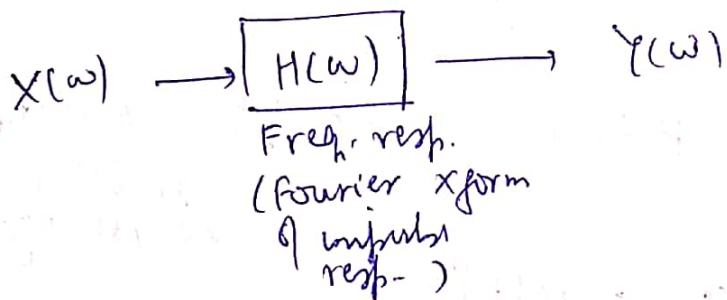 X(ω) → H(ω) → Y(ω)
Freq. resp.
(Fourier xform
of impulse
resp.)